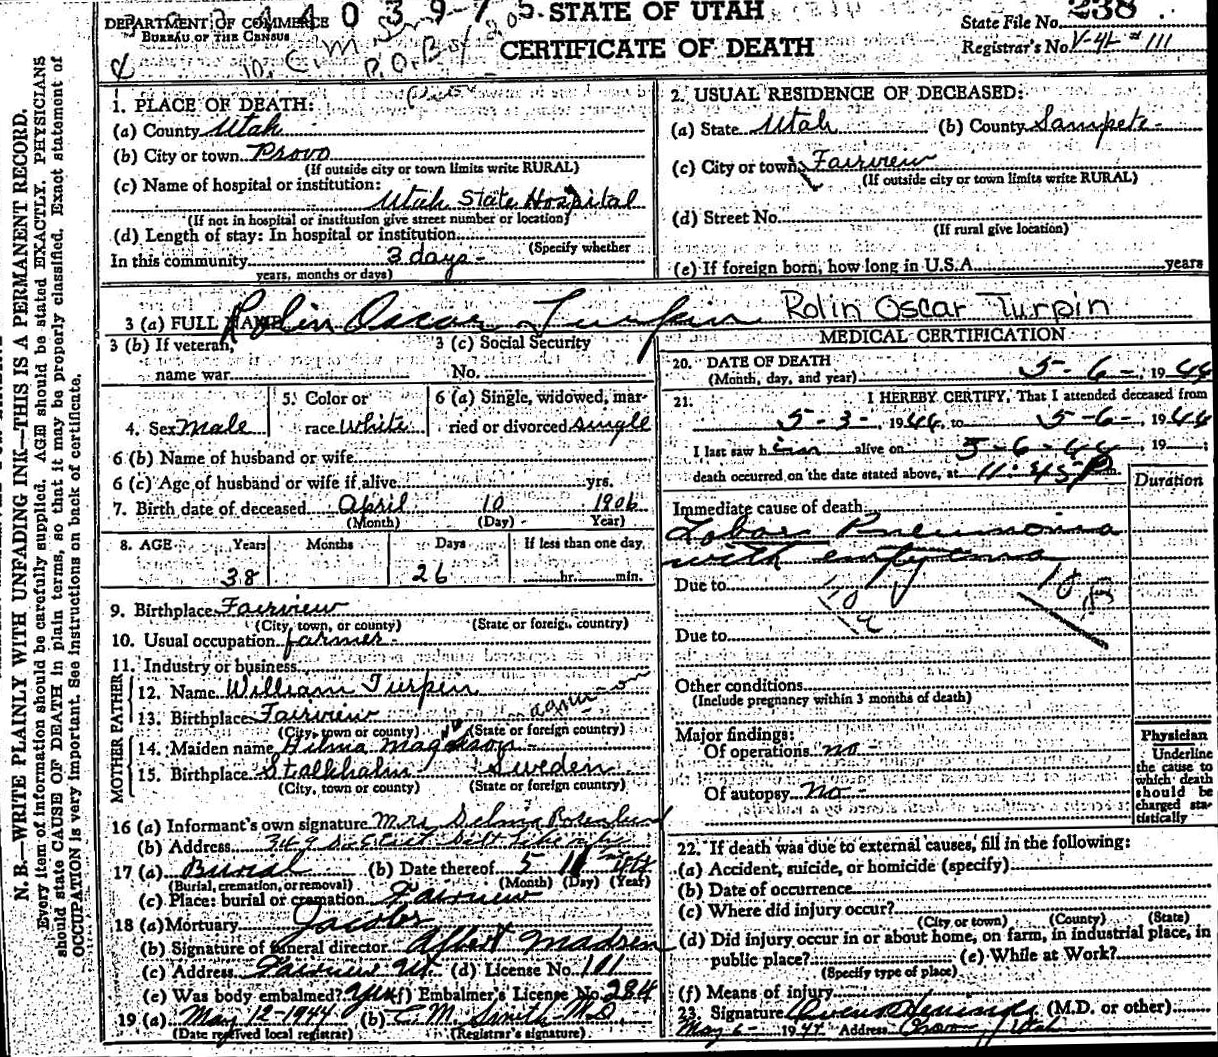 DEPARTMENT OF COMMERCE
BUREAU OF THE CENSUS
STATE OF UTAH
CERTIFICATE OF DEATH
State File No. 238
Registrar's No. V-42 #111
P.O. Box 205
N. B.—WRITE PLAINLY WITH UNFADING INK—THIS IS A PERMANENT RECORD.
Every item of information should be carefully supplied. AGE should be stated EXACTLY. PHYSICIANS
should state CAUSE OF DEATH in plain terms, so that it may be properly classified. Exact statement of
OCCUPATION is very important. See instructions on back of certificate.
1. PLACE OF DEATH:
(a) County Utah
(b) City or town Provo
(If outside city or town limits write RURAL)
(c) Name of hospital or institution:
Utah State Hospital
(If not in hospital or institution give street number or location)
(d) Length of stay: In hospital or institution
(Specify whether
In this community 3 days -
years, months or days)
2. USUAL RESIDENCE OF DECEASED:
(a) State Utah (b) County Sanpete -
(c) City or town Fairview
(If outside city or town limits write RURAL)
(d) Street No.
(If rural give location)
(e) If foreign born, how long in U.S.A. years
3 (a) FULL NAME Rolin Oscar Turpin Rolin Oscar Turpin
3 (b) If veteran, 3 (c) Social Security
name war No.
4. Sex Male 5. Color or race White 6 (a) Single, widowed, married or divorced single
6 (b) Name of husband or wife
6 (c) Age of husband or wife if alive yrs.
7. Birth date of deceased April 10 1906
(Month) (Day) Year)
8. AGE Years Months Days If less than one day
38 26 hr. min.
9. Birthplace Fairview
(City, town, or county) (State or foreign country)
10. Usual occupation farmer -
11. Industry or business
FATHER
12. Name William Turpin
13. Birthplace Fairview
(City, town or county) (State or foreign country)
MOTHER
14. Maiden name Hilma
15. Birthplace Sweden
(City, town or county) (State or foreign country)
16 (a) Informant's own signature Mrs Selma
(b) Address
17 (a) Burial (b) Date thereof 5 11
(Burial, cremation, or removal) (Month) (Day) (Year)
(c) Place: burial or cremation Fairview
18 (a) Mortuary Jacobs
(b) Signature of funeral director Albert Madsen
(c) Address Fairview Ut. (d) License No. 101
(e) Was body embalmed? Yes (f) Embalmer's License No. 284
19 (a) May 12-1944 (b) C.M. Smith M.D
(Date received local registrar) (Registrar's signature)
MEDICAL CERTIFICATION
20. DATE OF DEATH
(Month, day, and year) 5-6-, 1944
21. I HEREBY CERTIFY, That I attended deceased from
5-3-, 1944, to 5-6-, 1944
I last saw him alive on 5-6-44, 19
death occurred on the date stated above, at 11:45 P m.
Duration
Immediate cause of death
Lobar Pneumonia
with empyema
Due to
Due to
Other conditions
(Include pregnancy within 3 months of death)
Major findings:
Of operations no -
Of autopsy No -
Physician
Underline
the cause to
which death
should be
charged sta-
tistically
22. If death was due to external causes, fill in the following:
(a) Accident, suicide, or homicide (specify)
(b) Date of occurrence
(c) Where did injury occur?
(City or town) (County) (State)
(d) Did injury occur in or about home, on farm, in industrial place, in
public place? (e) While at Work?
(Specify type of place)
(f) Means of injury
23. Signature (M.D. or other)
May 6- 1944 Address Provo Utah